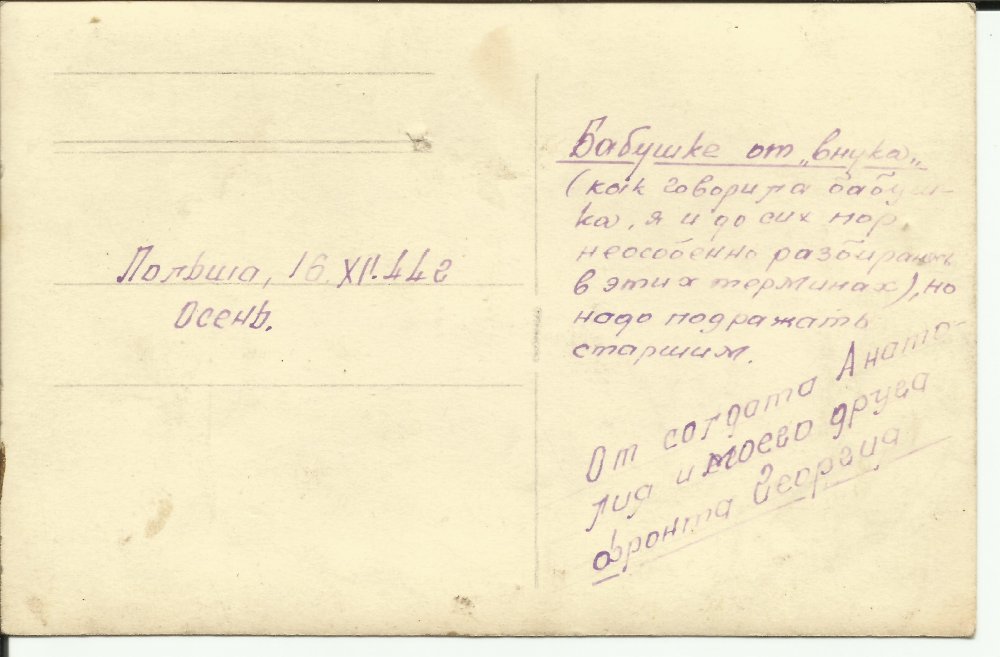 Польша, 16.XII.44г
Осень.
Бабушке от „внука„
(как говорила бабуш-
ка, я и до сих пор,
неособенно разбираюсь
в этих терминах), но
надо подражать
старшим.
От солдата Анато-
лия и моего друга
фронта Георгия